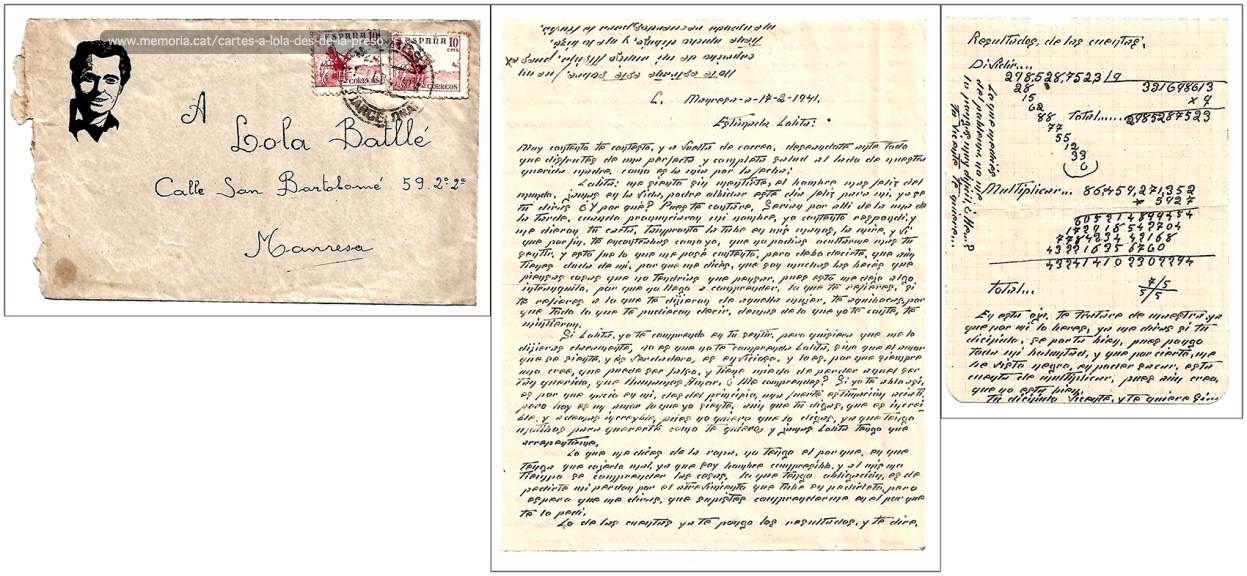 www.memoria.cat/cartes-a-lola-des-de-la-preso
ESPAÑA 10 CTS
CORREOS
ESPAÑA 10 CTS
CORREOS
A
Lola Batllé
Calle San Bartolomé 59. 2º 2ª
Manresa
Note estrañe este sobre, soy
C. Manresa-a-17-2-1941.
Estimada Lolita:
Muy contento te contesto, y a vuelta de correo, deseandote ante todo
que disfrutes de una perfecta y completa salud al lado de nuestra
querida madre, como es la mia por la fecha:
Lolita, me siento sin mentirte, el hombre mas feliz del
mundo, jamas en la vida, podre olbidar este dia feliz para mi, ya se
tu diras ¿Y por qué? Pues te contare, Serian por alli de la una de
la tarde, cuando pronunciaron mi nombre, yo contento respondi, y
me dieron tu carta, tan pronto la tube en mis manos, la mire, y vi
que por fin, te encontrabas como yo, que no podias ocultarme mas tu
sentir, y esto fue lo que me puso contento, pero debo decirte, que aún
tienes duda de mi, por que me dices, que son muchas las beces que
piensas cosas que no tendrias que pensar, pues esto me deja algo
intranquilo, por que no llego a comprender, lo que te refieres, si
te refieres a lo que te dijeron de aquella mujer, te aquibocas, por
que todo lo que te pudieron decir, demas de lo que yo te conte, te
mintieron.
Si Lolita, yo te comprendo en tu sentir, pero quisiera que me lo
dijeras claramente, no es que no te comprenda Lolita, sino que el amor
que se siente, y és verdadero, es enbicioso, y lo es, por que siempre
uno cree, que puede ser falso, y tiene miedo de perder aquel ser
tan querido, que llamamos Amor, ¿ Me comprendes? Si yo te ablo asi,
es por que nacio en mi, desde el principio, una fuerte estimacion acia ti,
pero hoy es un amor lo que yo siento, aún que tu digas, que es increi-
ble, y ademas increyble, pues no quiero que lo digas, ya que tengo
motibos para quererte como te quiero, y jamas Lolita tengo que
arrepentirme.
Lo que me dices de la ropa, no tengo el por que, en que
tenga que cojerlo mal, ya que soy hombre compresible, y al mismo
tiempo se comprender las cosas, lo que tengo obligación, es de
pedirte mi perdon por el atrevimiento que tube en pedirtelo, pero
espero que me diras, que supistes comprenderme en el por que
te lo pedi.
Lo de las cuentas ya te pongo los resultados, y te dire,
Resultados, de las cuentas,
Dividir...
298,528,7523/9
28
15
62
88
77
55
12
33
6
331698613
x 9
Total..... 2985287523
Multiplicar... 86,459,271,352
x 5927
605214899464
172918542704
778133442168
432296356760
Total...
7/5
5/5
En esta oja, te tratare de maestra ya
que por mi lo heres, ya me diras si tu
dicipulo, se porta bien, pues pongo
toda mi boluntad, y que por cierto, me
he visto negro, en poder sacar, esta
cuenta de multiplicar, pues aún creo,
que no esta bien.
Tu dicipulo Vicente, y te quiere